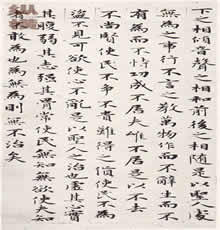 下之相傾音聲之相和前後相隨是以聖人處
無為之事行不言之教萬物作而不辭生而不
有為而不恃功成不居夫唯不居是以不去
不尚賢使民不爭不貴難得之貨使民不為
盜不見可欲使心不亂是以之治也虛其心實
其腹弱其志強其骨常使民無知無欲使夫知
不敢為也為無為則無不治矣